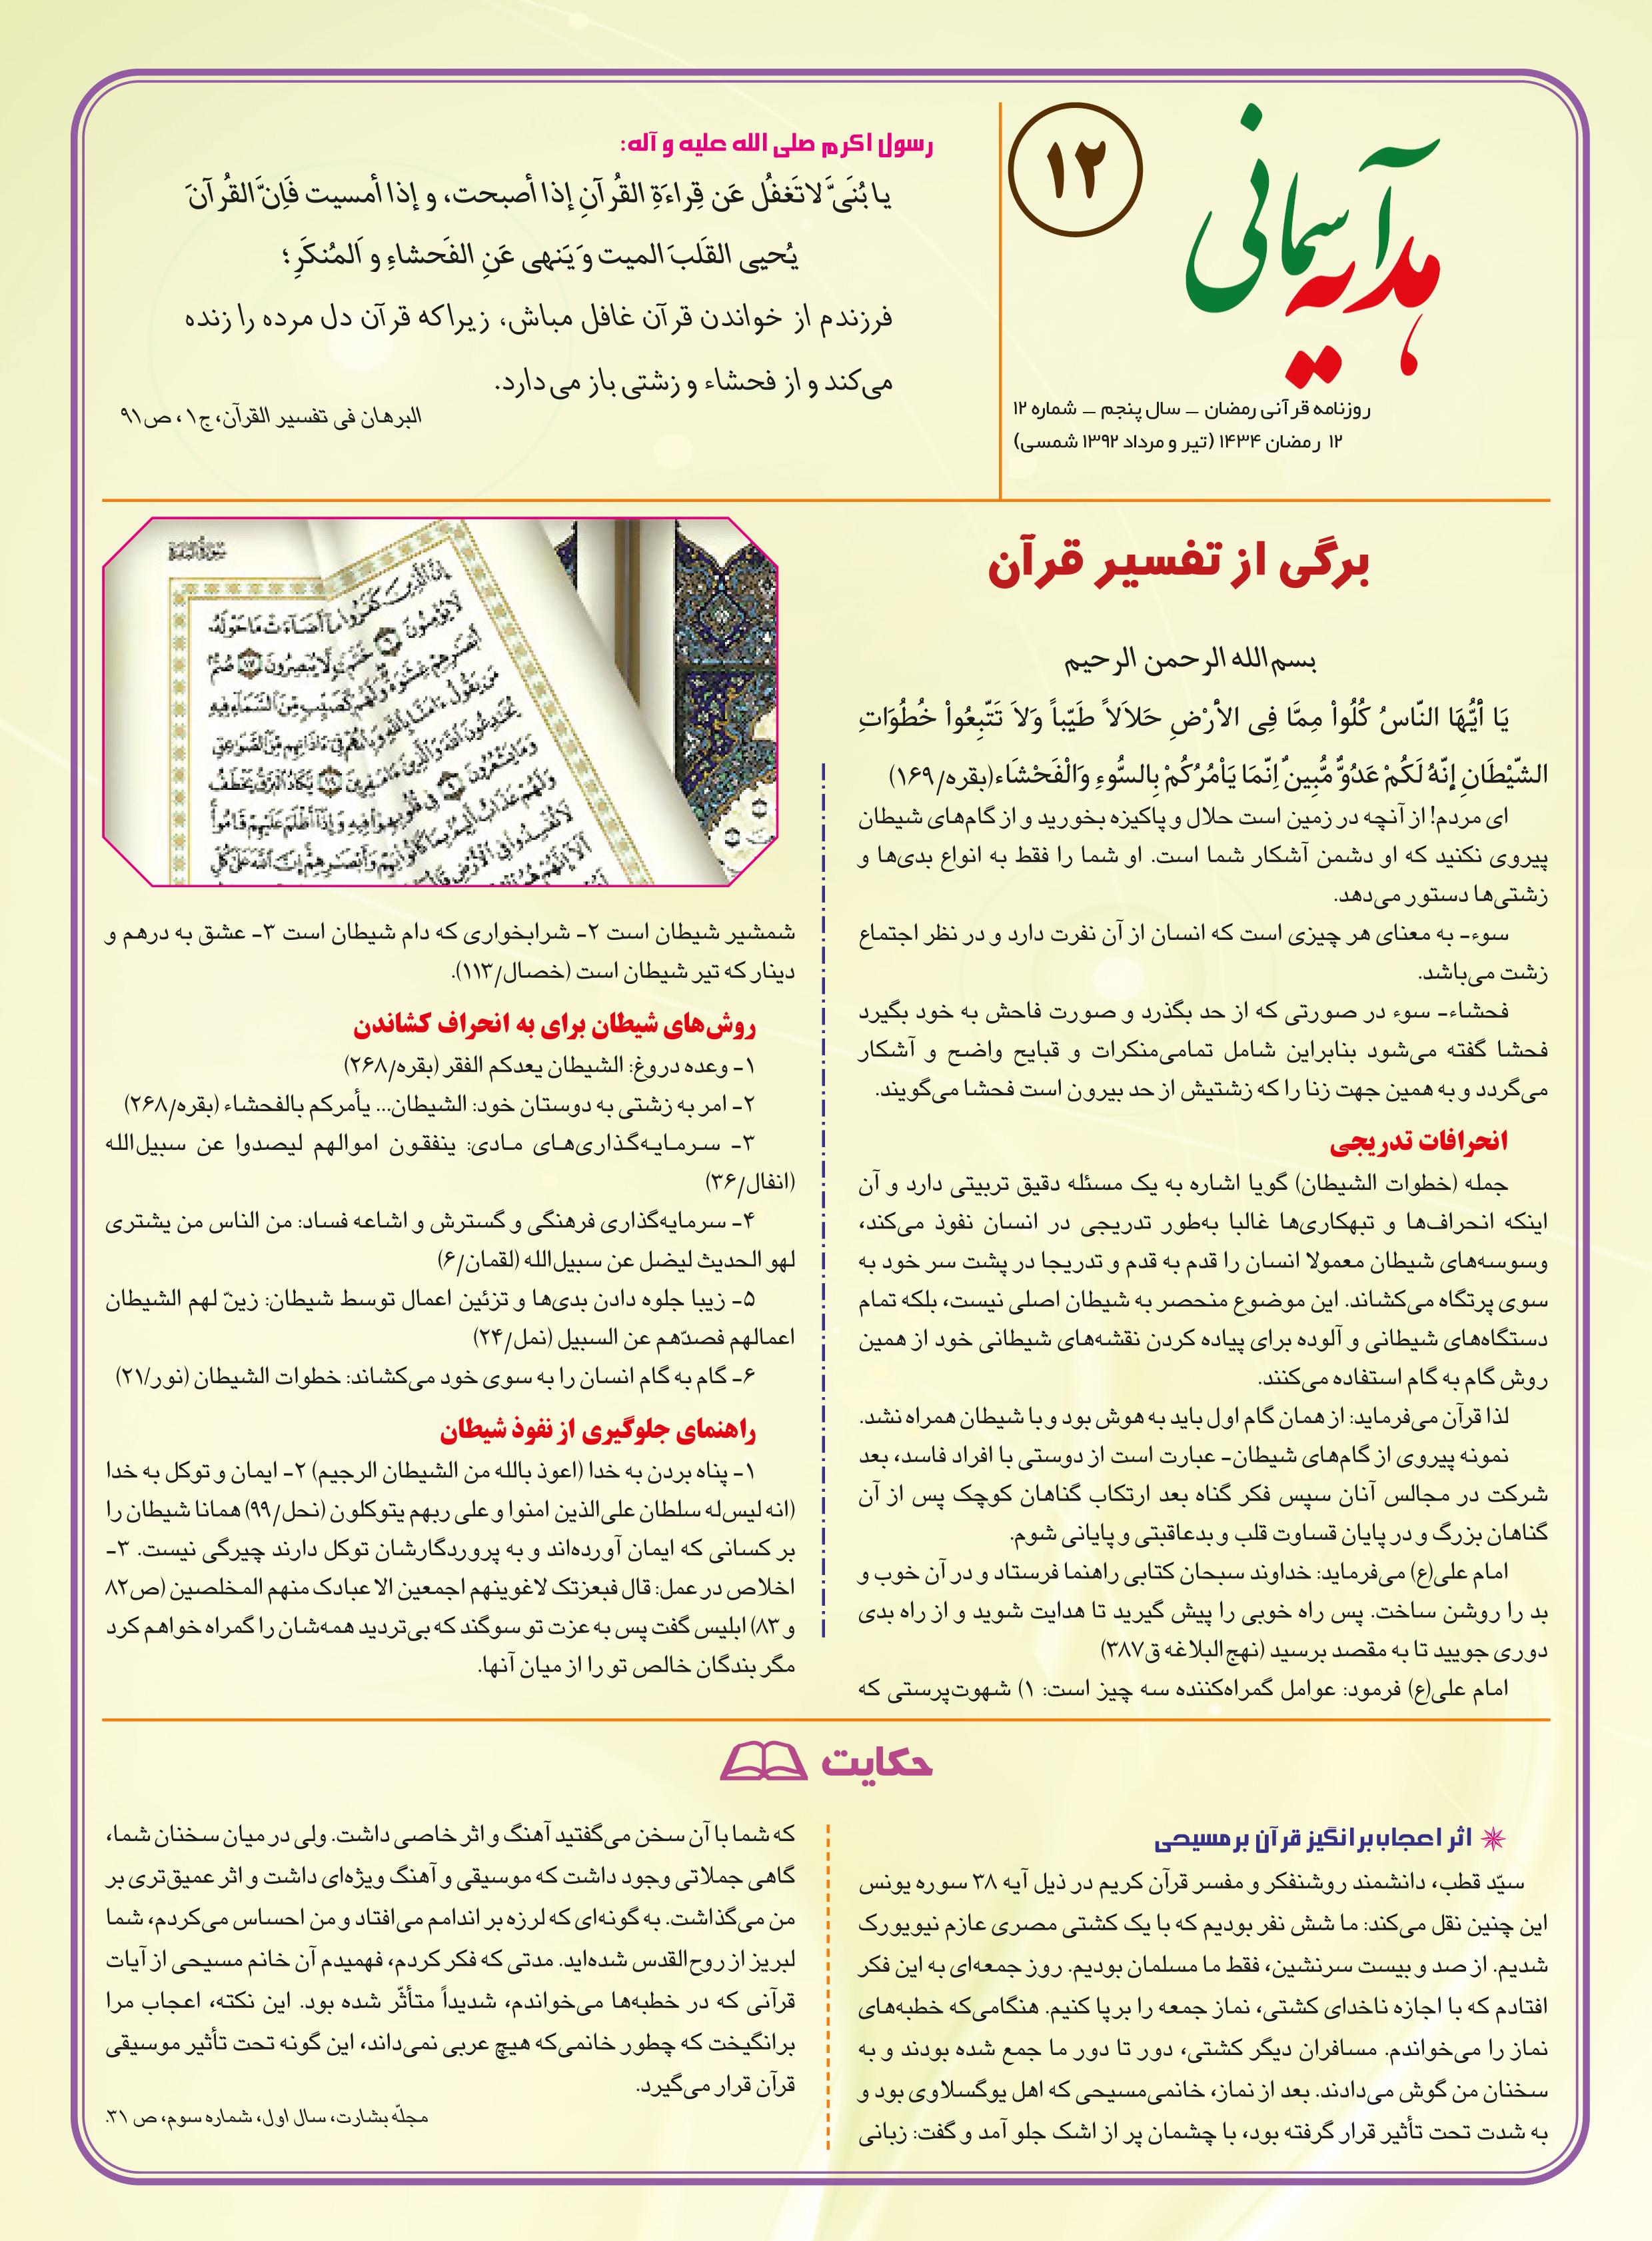 هدیه آسمانی
۱۲
روزنامه قرآنی رمضان – سال پنجم – شماره ۱۲
۱۲ رمضان ۱۴۳۴ (تیر و مرداد ۱۳۹۲ شمسی)
رسول اکرم صلی الله علیه و آله:
یا بُنَیَّ لاتَغفُل عَن قِراءَةِ القُرآنِ إذا أصبحت، و إذا أمسیت فَاِنَّ القُرآنَ
یُحیی القَلبَ المیت وَ یَنهی عَنِ الفَحشاءِ و اَلمُنکَرِ؛
فرزندم از خواندن قرآن غافل مباش، زیراکه قرآن دل مرده را زنده
می‌کند و از فحشاء و زشتی باز می‌دارد.
البرهان فی تفسیر القرآن، ج۱، ص۹۱
برگی از تفسیر قرآن
بسم الله الرحمن الرحیم
یَا أیُّهَا النّاسُ کُلُواْ مِمَّا فِی الأرْضِ حَلاَلاً طَیّباً وَلاَ تَتّبِعُواْ خُطُوَاتِ
الشّیْطَانِ إِنّهُ لَکُمْ عَدُوٌّ مُّبِینٌ اِنّمَا یَاْمُرُکُمْ بِالسُّوءِ وَالْفَحْشَاء(بقره/۱۶۹)
ای مردم! از آنچه در زمین است حلال و پاکیزه بخورید و از گام‌های شیطان
پیروی نکنید که او دشمن آشکار شما است. او شما را فقط به انواع بدی‌ها و
زشتی‌ها دستور می‌دهد.
سوء- به معنای هر چیزی است که انسان از آن نفرت دارد و در نظر اجتماع
زشت می‌باشد.
فحشاء- سوء در صورتی که از حد بگذرد و صورت فاحش به خود بگیرد
فحشا گفته می‌شود بنابراین شامل تمامی‌منکرات و قبایح واضح و آشکار
می‌گردد و به همین جهت زنا را که زشتیش از حد بیرون است فحشا می‌گویند.
انحرافات تدریجی
جمله (خطوات الشیطان) گویا اشاره به یک مسئله دقیق تربیتی دارد و آن
اینکه انحراف‌ها و تبهکاری‌ها غالبا به‌طور تدریجی در انسان نفوذ می‌کند،
وسوسه‌های شیطان معمولا انسان را قدم به قدم و تدریجا در پشت سر خود به
سوی پرتگاه می‌کشاند. این موضوع منحصر به شیطان اصلی نیست، بلکه تمام
دستگاه‌های شیطانی و آلوده برای پیاده کردن نقشه‌های شیطانی خود از همین
روش گام به گام استفاده می‌کنند.
لذا قرآن می‌فرماید: از همان گام اول باید به هوش بود و با شیطان همراه نشد.
نمونه پیروی از گام‌های شیطان- عبارت است از دوستی با افراد فاسد، بعد
شرکت در مجالس آنان سپس فکر گناه بعد ارتکاب گناهان کوچک پس از آن
گناهان بزرگ و در پایان قساوت قلب و بدعاقبتی و پایانی شوم.
امام علی(ع) می‌فرماید: خداوند سبحان کتابی راهنما فرستاد و در آن خوب و
بد را روشن ساخت. پس راه خوبی را پیش گیرید تا هدایت شوید و از راه بدی
دوری جویید تا به مقصد برسید (نهج‌البلاغه ق۳۸۷)
امام علی(ع) فرمود: عوامل گمراه‌کننده سه چیز است: ۱) شهوت‌پرستی که
شمشیر شیطان است ۲- شرابخواری که دام شیطان است ۳- عشق به درهم و
دینار که تیر شیطان است (خصال/۱۱۳).
روش‌های شیطان برای به انحراف کشاندن
۱- وعده دروغ: الشیطان یعدکم الفقر (بقره/۲۶۸)
۲- امر به زشتی به دوستان خود: الشیطان... یأمرکم بالفحشاء (بقره/۲۶۸)
۳- سرمایه‌گذاری‌های مادی: ینفقون اموالهم لیصدوا عن سبیل‌الله
(انفال/۳۶)
۴- سرمایه‌گذاری فرهنگی و گسترش و اشاعه فساد: من الناس من یشتری
لهو الحدیث لیضل عن سبیل‌الله (لقمان/۶)
۵- زیبا جلوه دادن بدی‌ها و تزئین اعمال توسط شیطان: زینّ لهم الشیطان
اعمالهم فصدّهم عن السبیل (نمل/۲۴)
۶- گام به گام انسان را به سوی خود می‌کشاند: خطوات الشیطان (نور/۲۱)
راهنمای جلوگیری از نفوذ شیطان
۱- پناه بردن به خدا (اعوذ بالله من الشیطان الرجیم) ۲- ایمان و توکل به خدا
(انه لیس‌له سلطان علی‌الذین امنوا و علی ربهم یتوکلون (نحل/۹۹) همانا شیطان را
بر کسانی که ایمان آورده‌اند و به پروردگارشان توکل دارند چیرگی نیست. ۳-
اخلاص در عمل: قال فبعزتک لاغوینهم اجمعین الا عبادک منهم المخلصین (ص۸۲
و ۸۳) ابلیس گفت پس به عزت تو سوگند که بی‌تردید همه‌شان را گمراه خواهم کرد
مگر بندگان خالص تو را از میان آنها.
حکایت
اثر اعجاب‌برانگیز قرآن بر مسیحی
سیّد قطب، دانشمند روشنفکر و مفسر قرآن کریم در ذیل آیه ۳۸ سوره یونس
این چنین نقل می‌کند: ما شش نفر بودیم که با یک کشتی مصری عازم نیویورک
شدیم. از صد و بیست سرنشین، فقط ما مسلمان بودیم. روز جمعه‌ای به این فکر
افتادم که با اجازه ناخدای کشتی، نماز جمعه را برپا کنیم. هنگامی‌که خطبه‌های
نماز را می‌خواندم. مسافران دیگر کشتی، دور تا دور ما جمع شده بودند و به
سخنان من گوش می‌دادند. بعد از نماز، خانمی‌مسیحی که اهل یوگسلاوی بود و
به شدت تحت تأثیر قرار گرفته بود، با چشمان پر از اشک جلو آمد و گفت: زبانی
که شما با آن سخن می‌گفتید آهنگ و اثر خاصی داشت. ولی در میان سخنان شما،
گاهی جملاتی وجود داشت که موسیقی و آهنگ ویژه‌ای داشت و اثر عمیق‌تری بر
من می‌گذاشت. به گونه‌ای که لرزه بر اندامم می‌افتاد و من احساس می‌کردم، شما
لبریز از روح‌القدس شده‌اید. مدتی که فکر کردم، فهمیدم آن خانم مسیحی از آیات
قرآنی که در خطبه‌ها می‌خواندم، شدیداً متأثّر شده بود. این نکته، اعجاب مرا
برانگیخت که چطور خانمی‌که هیچ عربی نمی‌داند، این گونه تحت تأثیر موسیقی
قرآن قرار می‌گیرد.
مجلّه بشارت، سال اول، شماره سوم، ص ۳۱.